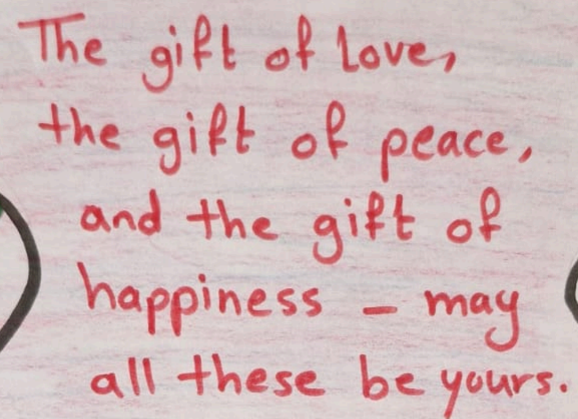 The gift of love,
the gift of peace,
and the gift of
happiness - may
all these be yours.